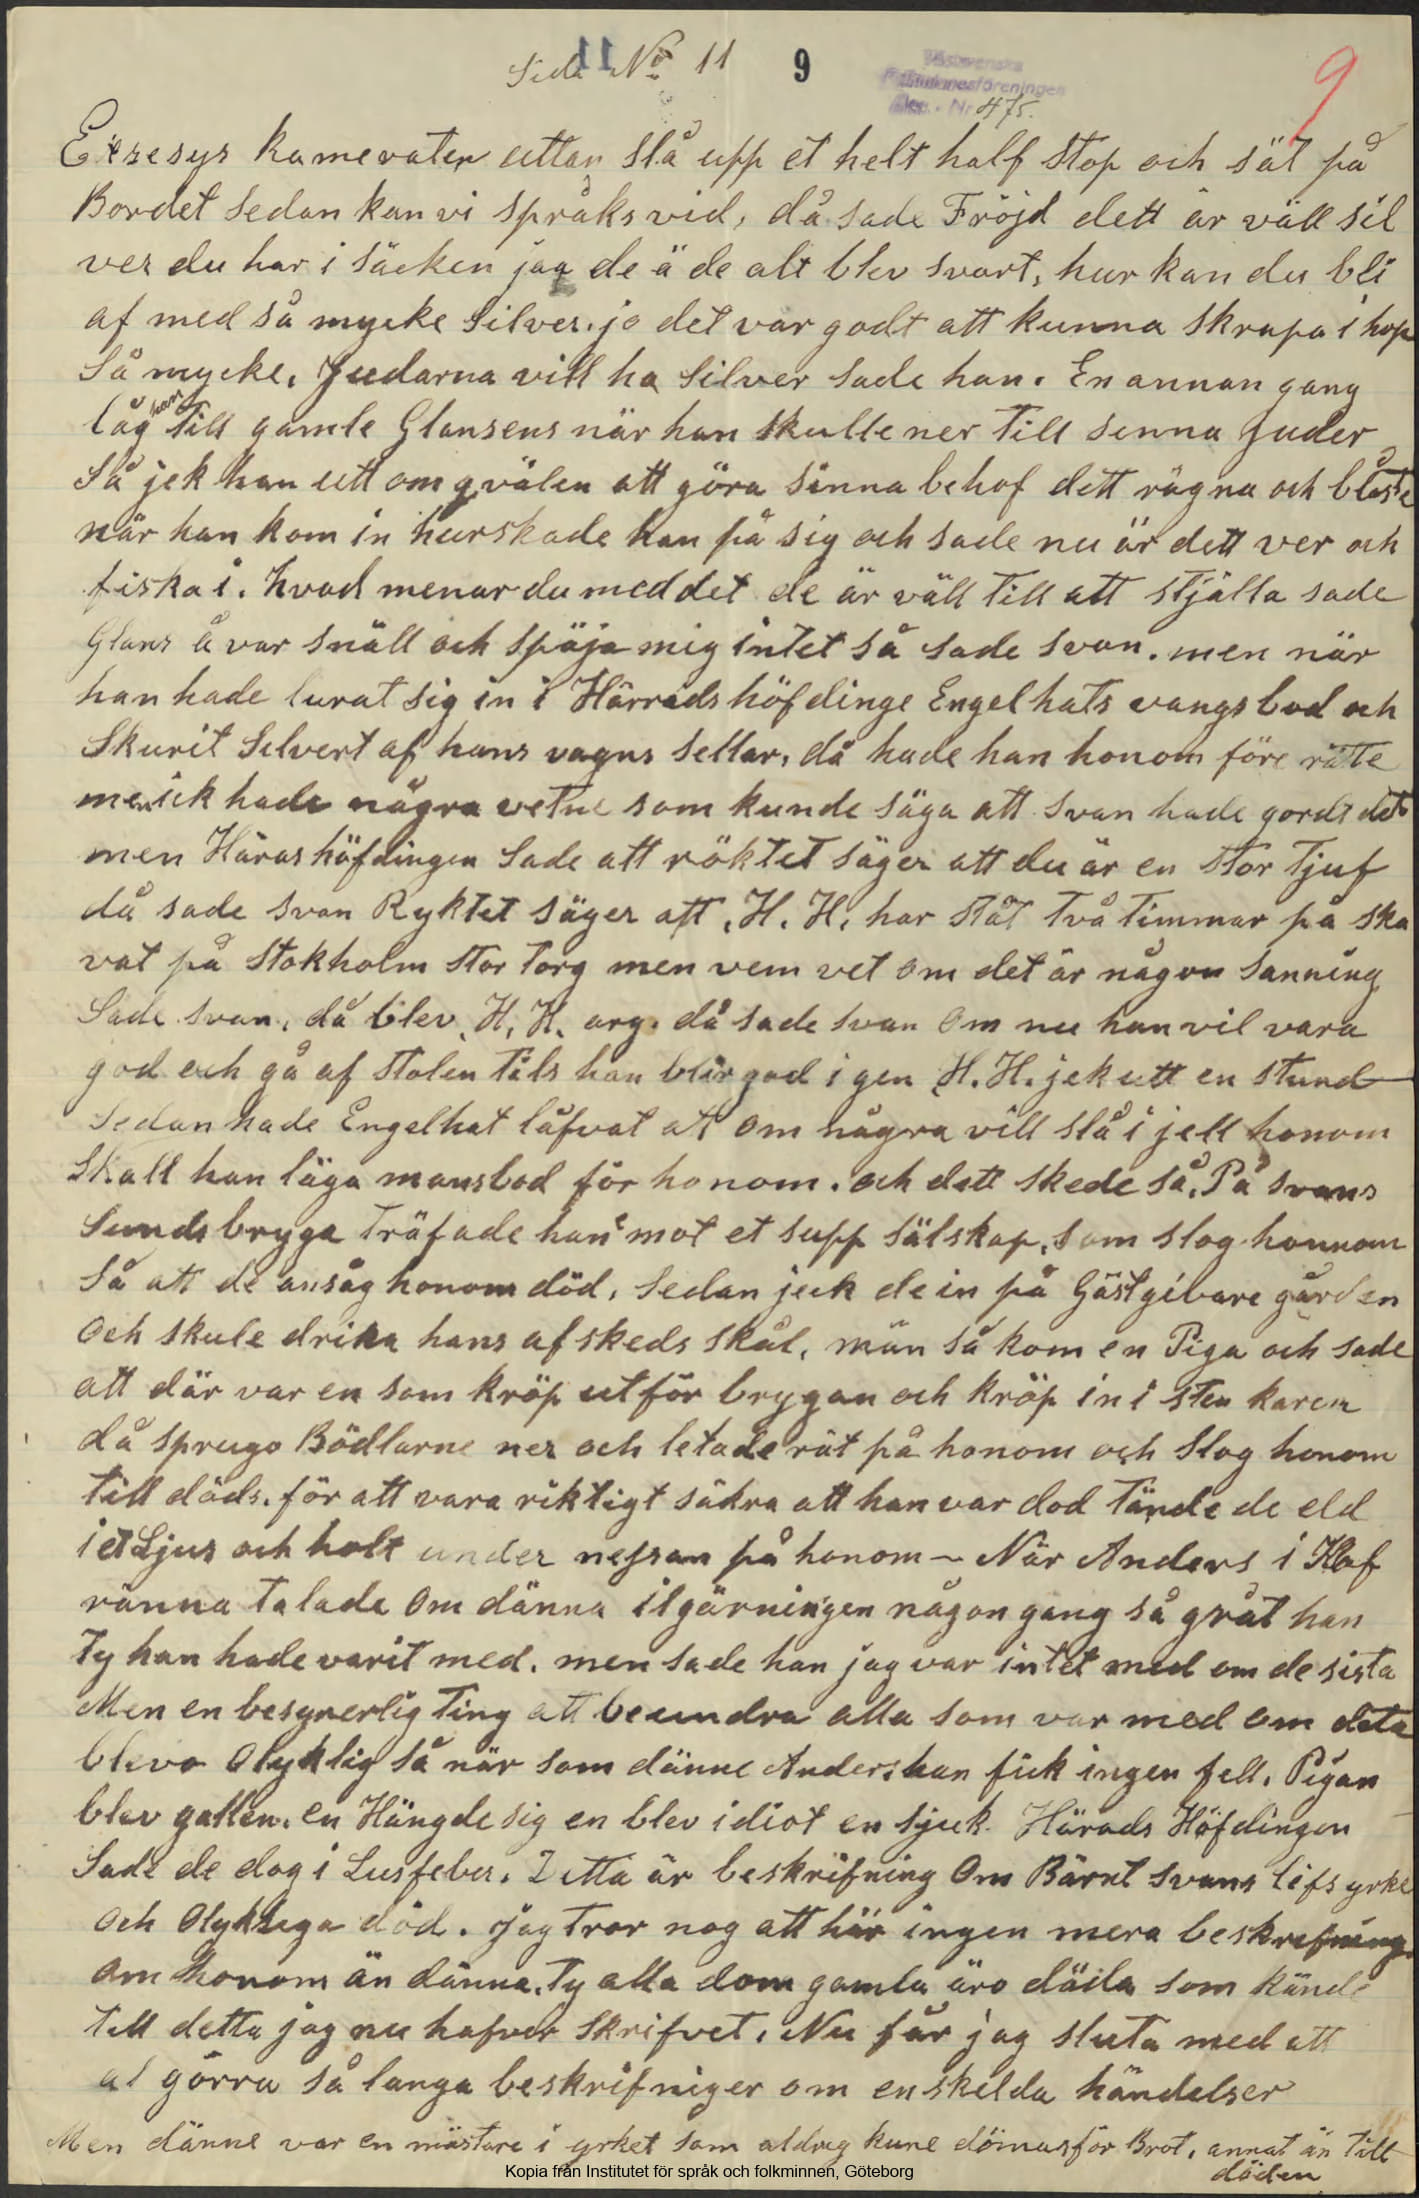 Sida No 11 9 9
Västsvenska
Folkminnesföreningen
Acc. - Nr 475.
Exsesys kamerater uttan slå upp et helt half stop och sät på
Bordet sedan kan vi språks vid, då sade Fröjd dett är väll sil
ver du har i säcken jaa de ä de alt blev svart, hur kan du bli
af med så mycke silver. jo det var godt att kunna skrapa i hop
så mycke. Judarna vill ha silver sade han. En annan gang
låg han till gamle Glansens när han skulle ner till senna Juder
så jek han utt om qvälen att göra sinna behof dett rägna och blåste
när han kom in hurskade han på sig och sade nu är dett ver och
fiska i. hvad menar du med det de är väll till att stjälla sade
Glans å var snäll och späja mig intet så sade svan. men när
han hade lurat sig in i Härradshöfdinge Engelhats vangsbod och
skurit silvert af hans vagns sellar, då hade han honom före rätte
men ick hade några vetne som kunde säga att svan hade gordt det
men Häras höfdingen sade att röktet säger att du är en stor tjuf
då sade svan Ryktet säger att, H. H, har ståt två timmar på ska
vat på Stokholm stor torg men vem vet om det är någon sanning
sade svan, då blev, H, H, arg. då sade svan om nu han vil vara
god och gå af stolen tils han blir god i gen H. H. jek utt en stund
sedan hade Engelhat låfvat at om några vill slå i jell honom
skall han läga mansbod för honom. och dett skede så. På svans
sunds bryga träfade han mot et supp sälskap, som slog honnom
så att de ansåg honom död, sedan jeck de in på Gästgibare gården
och skule drika hans afskeds skål, män så kom en Piga och sade
att där var en som kröp utför brygan och kröp in i sten karen
då sprugo Bödlarne ner och letade rät på honom och slog honom
till döds. för att vara riktigt säkra att han var dod tände de eld
i et Ljus och holt under nessan på honom — När Anders i Klof
ränna talade om dänna ilgärningen någon gang så gråt han
ty han hade varit med. men sade han jag var intet med om de sista
Men en besynerlig ting att beundra alla som var med om deta
blevo olyklig så när som dänne Anders. han fick ingen fell. Pigan
blev gallen. en Hängde sig en blev idiot en sjuk. Härads Höfdingen
sade de dog i Lusfeber. Detta är beskrifning om Bärnt svans lifs yrke
och olykliga död. jag tror nog att här ingen mera beskrefning
om honom än dänna. ty alla dom gamla äro döda som kände
till detta jag nu hafver skrifvet. Nu får jag sluta med att
at görra så langa beskrifniger om enskilda händelser
Men dänne var en mästare i yrket som aldrig kune dömas för Brot, annat än till
döden
Kopia från Institutet för språk och folkminnen, Göteborg